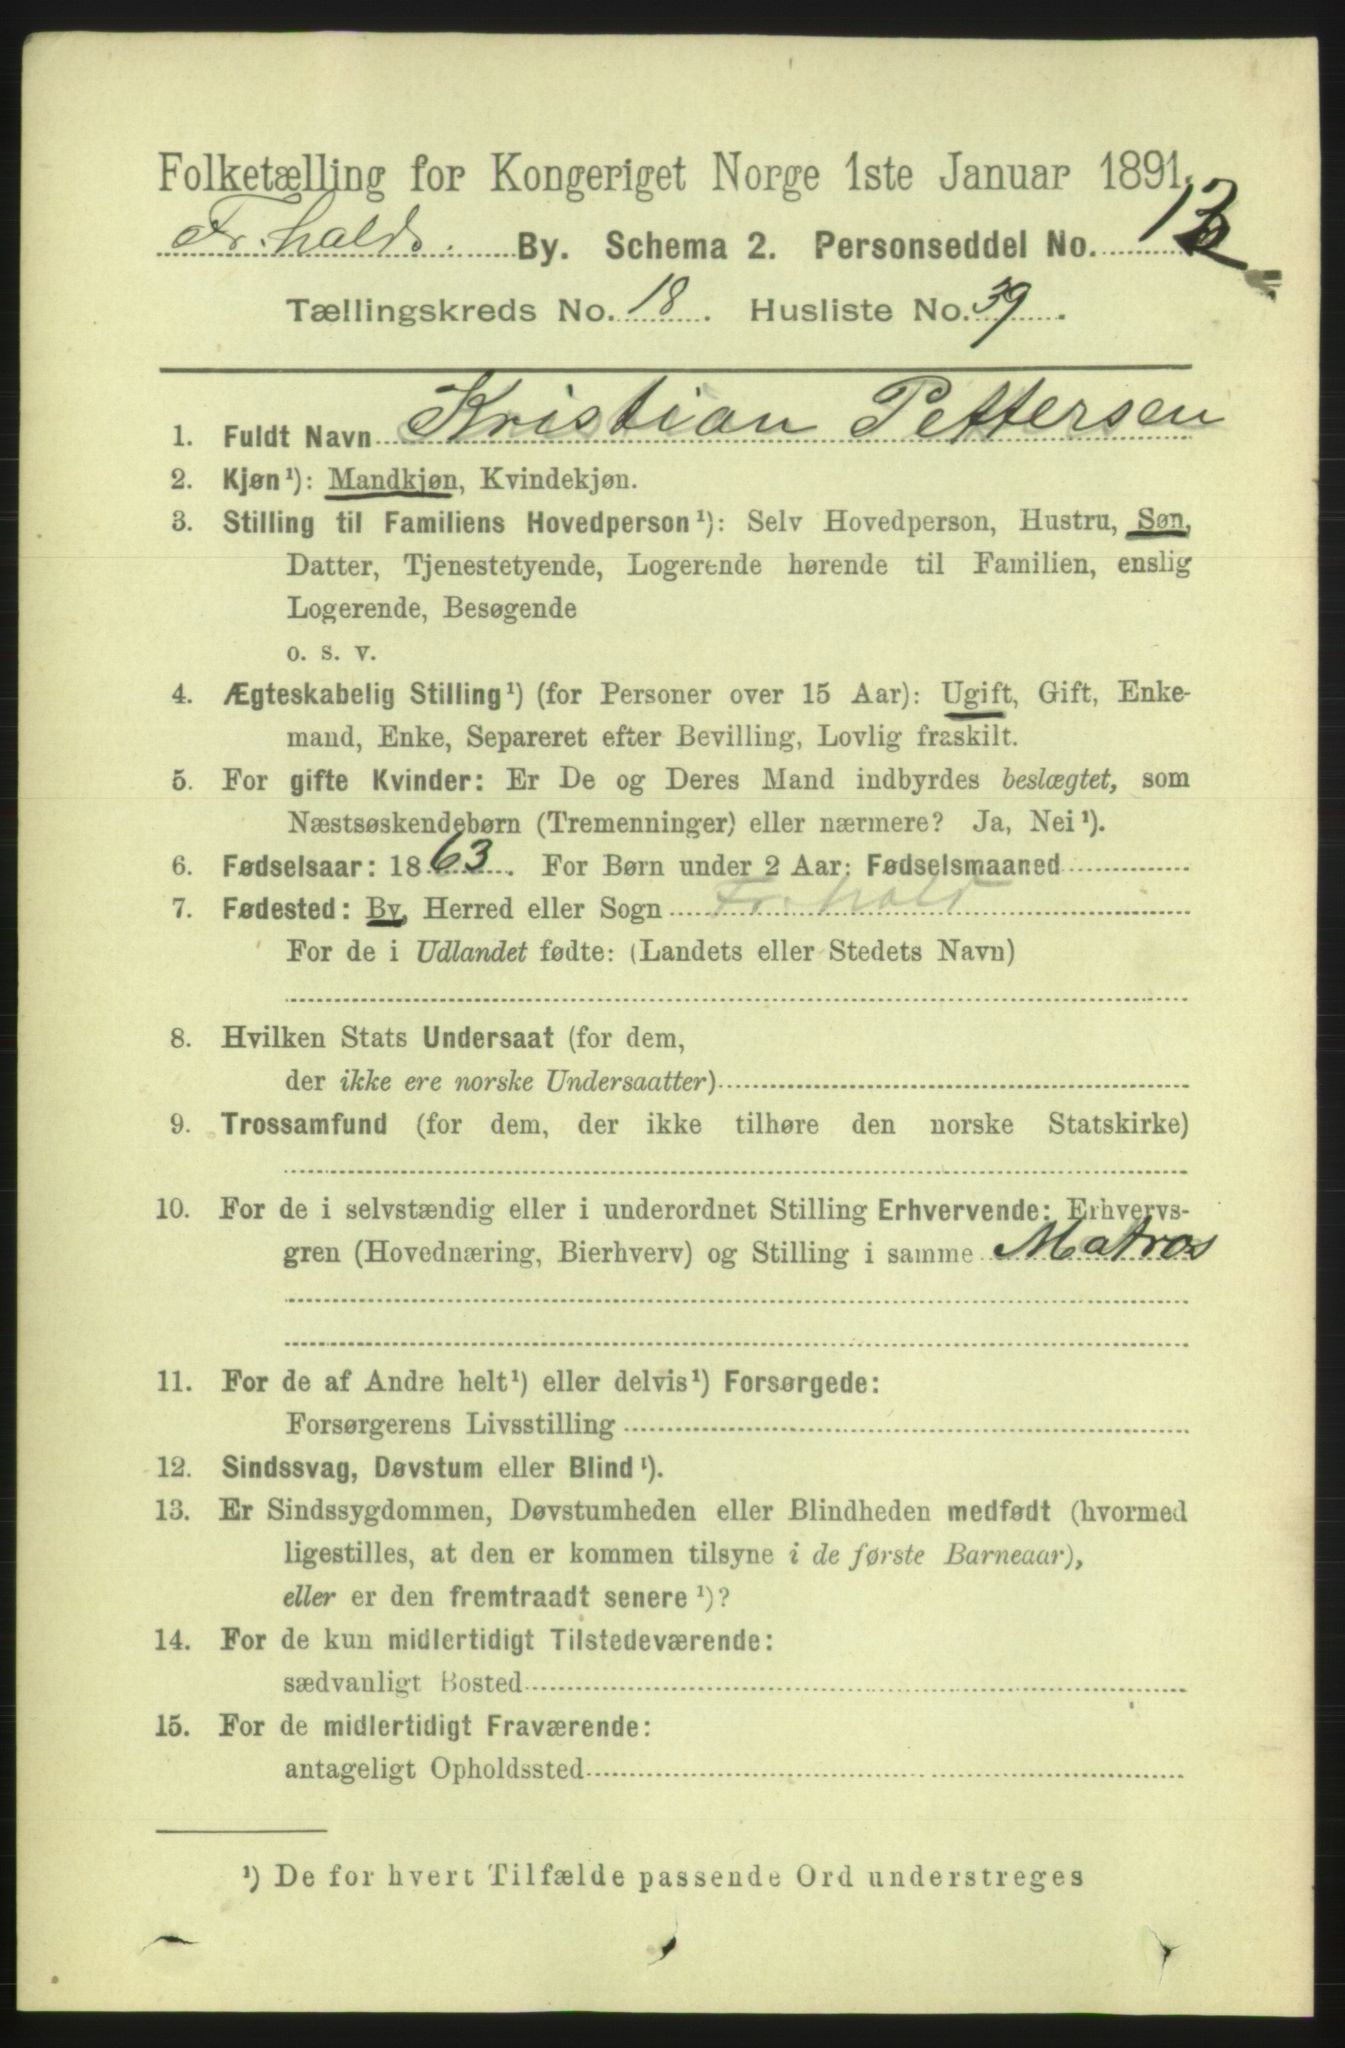 Folketælling for Kongeriget Norge 1ste Januar 1891.
Fr.halds By. Schema 2. Personseddel No. 12
Tællingskreds No. 18. Husliste No. 39.
1. Fuldt Navn Kristian Pettersen
2. Kjøn¹): Mandkjøn, Kvindekjøn.
3. Stilling til Familiens Hovedperson¹): Selv Hovedperson, Hustru, Søn,
Datter, Tjenestetyende, Logerende hørende til Familien, enslig
Logerende, Besøgende
o. s. v.
4. Ægteskabelig Stilling¹) (for Personer over 15 Aar): Ugift, Gift, Enke-
mand, Enke, Separeret efter Bevilling, Lovlig fraskilt.
5. For gifte Kvinder: Er De og Deres Mand indbyrdes beslægtet, som
Næstsøskendebørn (Tremenninger) eller nærmere? Ja, Nei¹).
6. Fødselsaar: 1863. For Børn under 2 Aar: Fødselsmaaned
7. Fødested: By, Herred eller Sogn Fr.hald
For de i Udlandet fødte: (Landets eller Stedets Navn)
8. Hvilken Stats Undersaat (for dem,
der ikke ere norske Undersaatter)
9. Trossamfund (for dem, der ikke tilhøre den norske Statskirke)
10. For de i selvstændig eller i underordnet Stilling Erhvervende: Erhvervs-
gren (Hovednæring, Bierhverv) og Stilling i samme Matros
11. For de af Andre helt¹) eller delvis¹) Forsørgede:
Forsørgerens Livsstilling
12. Sindssvag, Døvstum eller Blind¹).
13. Er Sindssygdommen, Døvstumheden eller Blindheden medfødt (hvormed
ligestilles, at den er kommen tilsyne i de første Barneaar),
eller er den fremtraadt senere¹)?
14. For de kun midlertidigt Tilstedeværende:
sædvanligt Bosted
15. For de midlertidigt Fraværende:
antageligt Opholdssted
¹) De for hvert Tilfælde passende Ord understreges